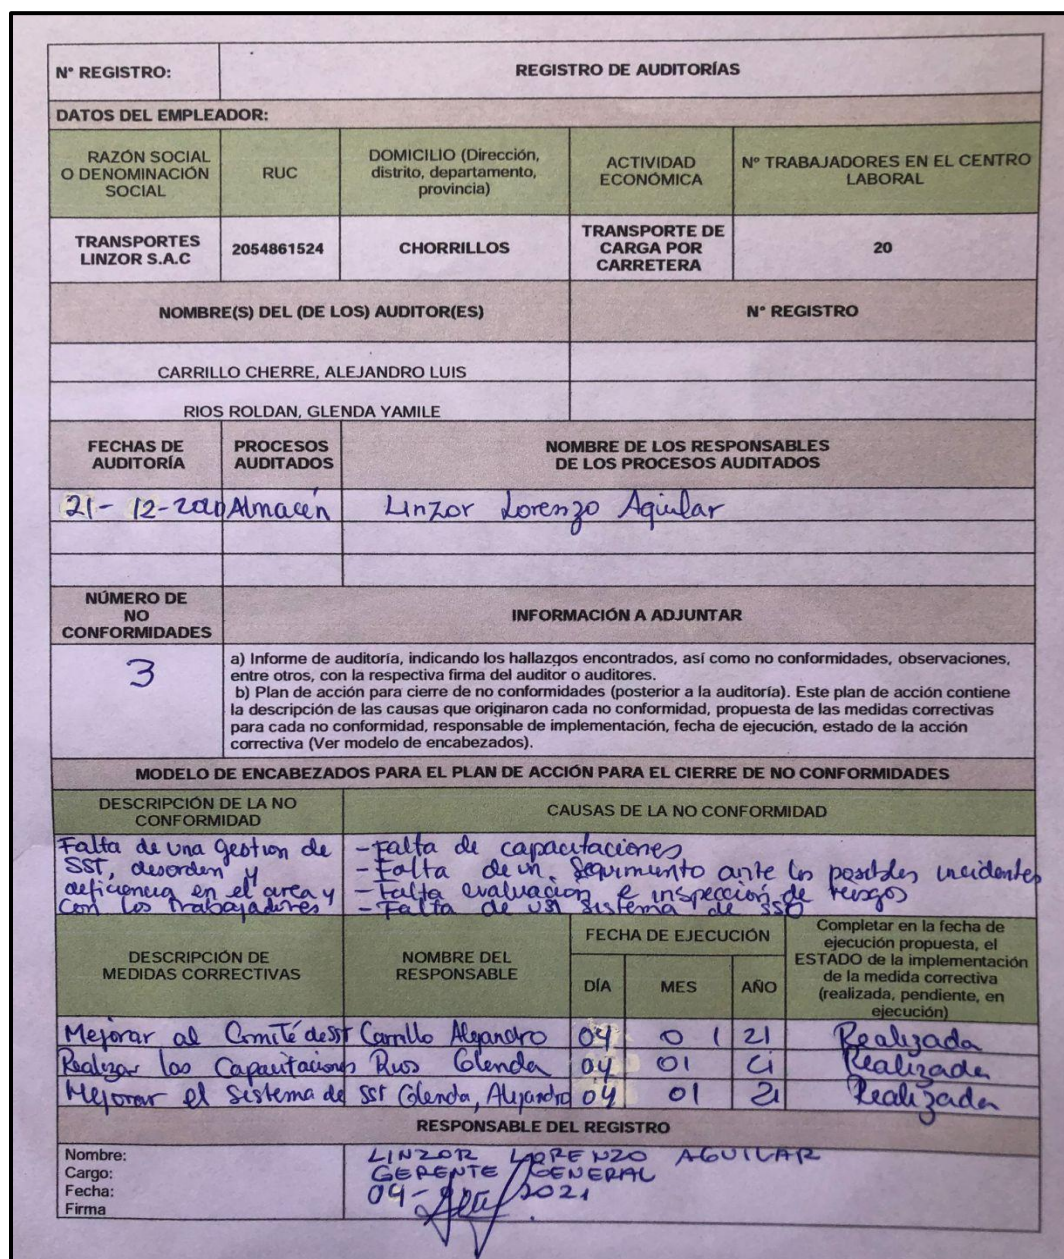 N° REGISTRO:
REGISTRO DE AUDITORÍAS
DATOS DEL EMPLEADOR:
RAZÓN SOCIAL
O DENOMINACIÓN
SOCIAL
RUC
DOMICILIO (Dirección,
distrito, departamento,
provincia)
ACTIVIDAD
ECONÓMICA
N° TRABAJADORES EN EL CENTRO
LABORAL
TRANSPORTES
LINZOR S.A.C
2054861524
CHORRILLOS
TRANSPORTE DE
CARGA POR
CARRETERA
20
NOMBRE(S) DEL (DE LOS) AUDITOR(ES)
N° REGISTRO
CARRILLO CHERRE, ALEJANDRO LUIS
RIOS ROLDAN, GLENDA YAMILE
FECHAS DE
AUDITORÍA
PROCESOS
AUDITADOS
NOMBRE DE LOS RESPONSABLES
DE LOS PROCESOS AUDITADOS
21- 12-2020
Almacén
Linzor Lorenzo Aguilar
NÚMERO DE
NO
CONFORMIDADES
INFORMACIÓN A ADJUNTAR
3
a) Informe de auditoría, indicando los hallazgos encontrados, así como no conformidades, observaciones,
entre otros, con la respectiva firma del auditor o auditores.
b) Plan de acción para cierre de no conformidades (posterior a la auditoría). Este plan de acción contiene
la descripción de las causas que originaron cada no conformidad, propuesta de las medidas correctivas
para cada no conformidad, responsable de implementación, fecha de ejecución, estado de la acción
correctiva (Ver modelo de encabezados).
MODELO DE ENCABEZADOS PARA EL PLAN DE ACCIÓN PARA EL CIERRE DE NO CONFORMIDADES
DESCRIPCIÓN DE LA NO
CONFORMIDAD
CAUSAS DE LA NO CONFORMIDAD
Falta de una gestion de
SST, desorden y
deficiencia en el area y
con los trabajadores
- Falta de capacitaciones
- Falta de un seguimento ante los posibles incidentes
- Falta evaluación e inspección de riesgos
- Falta de un sistema de SSO
DESCRIPCIÓN DE
MEDIDAS CORRECTIVAS
NOMBRE DEL
RESPONSABLE
FECHA DE EJECUCIÓN
DÍA
MES
AÑO
Completar en la fecha de
ejecución propuesta, el
ESTADO de la implementación
de la medida correctiva
(realizada, pendiente, en
ejecución)
Mejorar al Comité de SST Carrillo Alejandro 04 01 21 Realizada
Realizar las Capacitaciones Rios Glenda 04 01 21 Realizada
Mejorar el Sistema de SST Glenda, Alejandro 04 01 21 Realizada
RESPONSABLE DEL REGISTRO
Nombre:
LINZOR LORENZO AGUILAR
Cargo:
GERENTE GENERAL
Fecha:
04- 2021
Firma